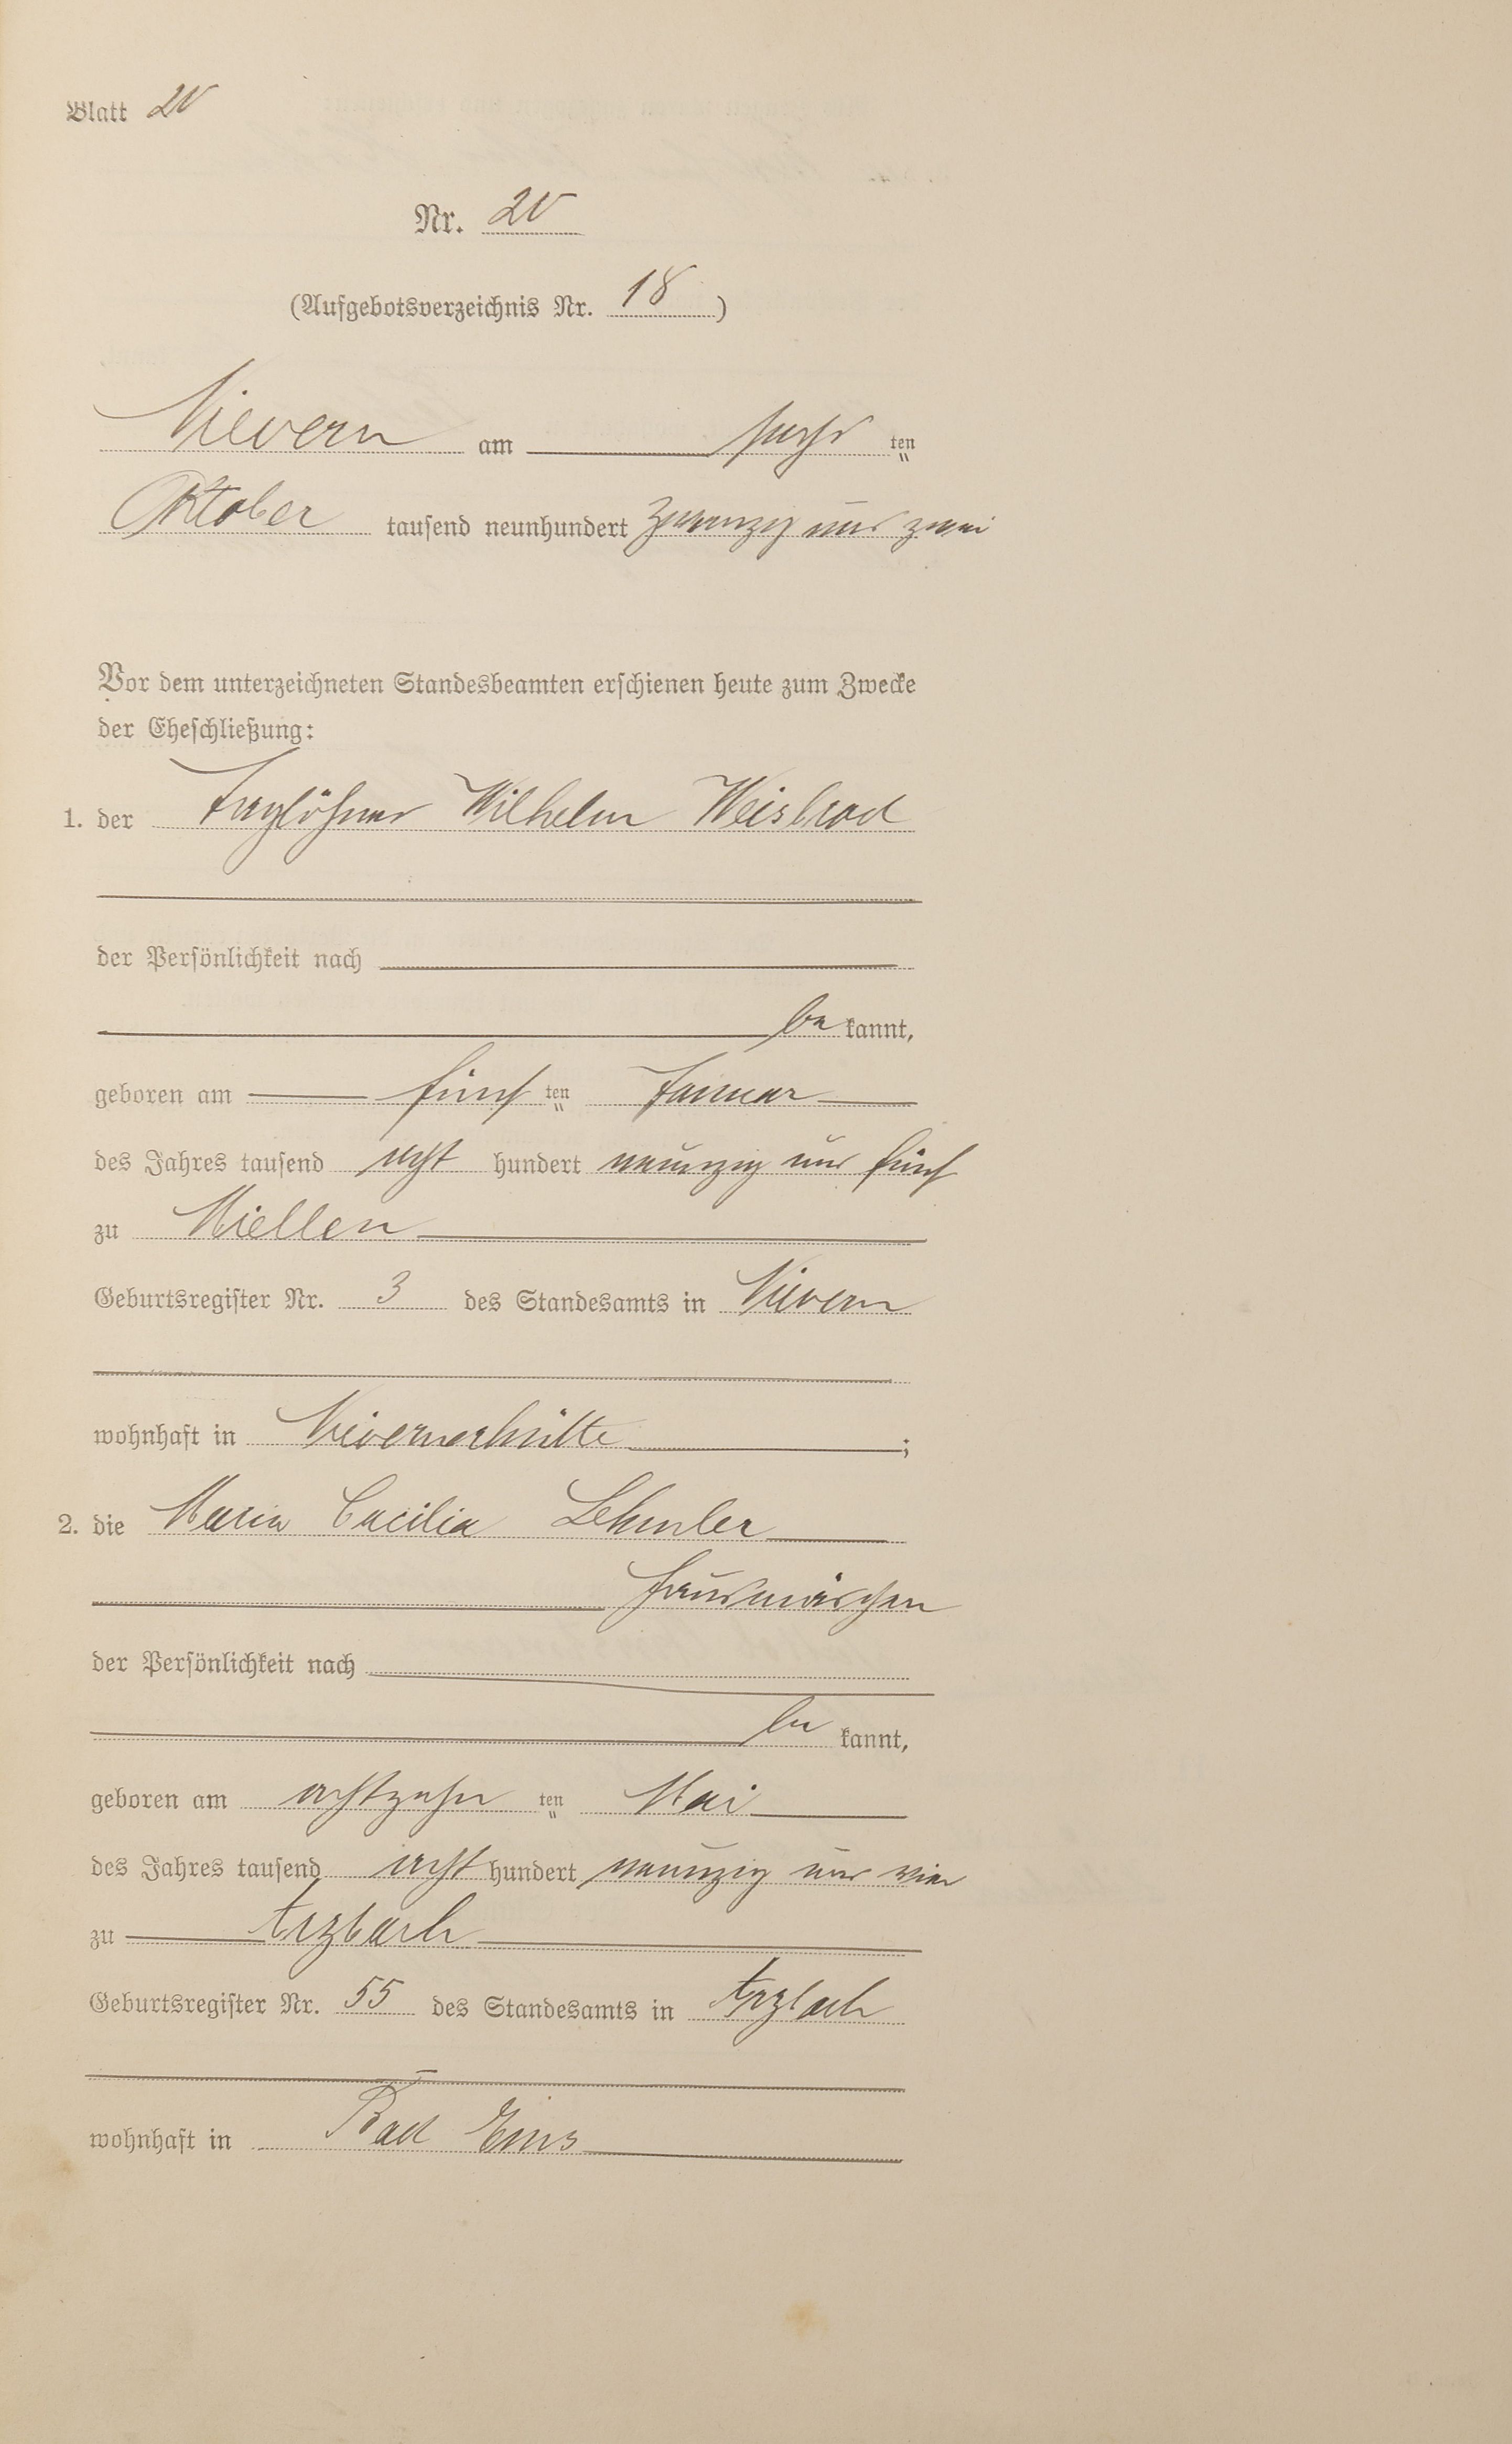 Blatt 20
Nr. 20
(Aufgebotsverzeichnis Nr. 18)
Nievern am sechs ten
Oktober tausend neunhundert zwanzig und zwei
Vor dem unterzeichneten Standesbeamten erschienen heute zum Zwecke
der Eheschließung:
1. der Taglöhner Wilhelm Weisbrod
der Persönlichkeit nach
be kannt,
geboren am fünf ten Januar
des Jahres tausend acht hundert neunzig und fünf
zu Miellen
Geburtsregister Nr. 3 des Standesamts in Nievern
wohnhaft in Nievernerhütte ;
2. die Maria Cacilia Lehmler
Hausmädchen
der Persönlichkeit nach
be kannt,
geboren am achtzehn ten Mai
des Jahres tausend acht hundert neunzig und vier
zu Arzbach
Geburtsregister Nr. 55 des Standesamts in Arzbach
wohnhaft in Bad Ems